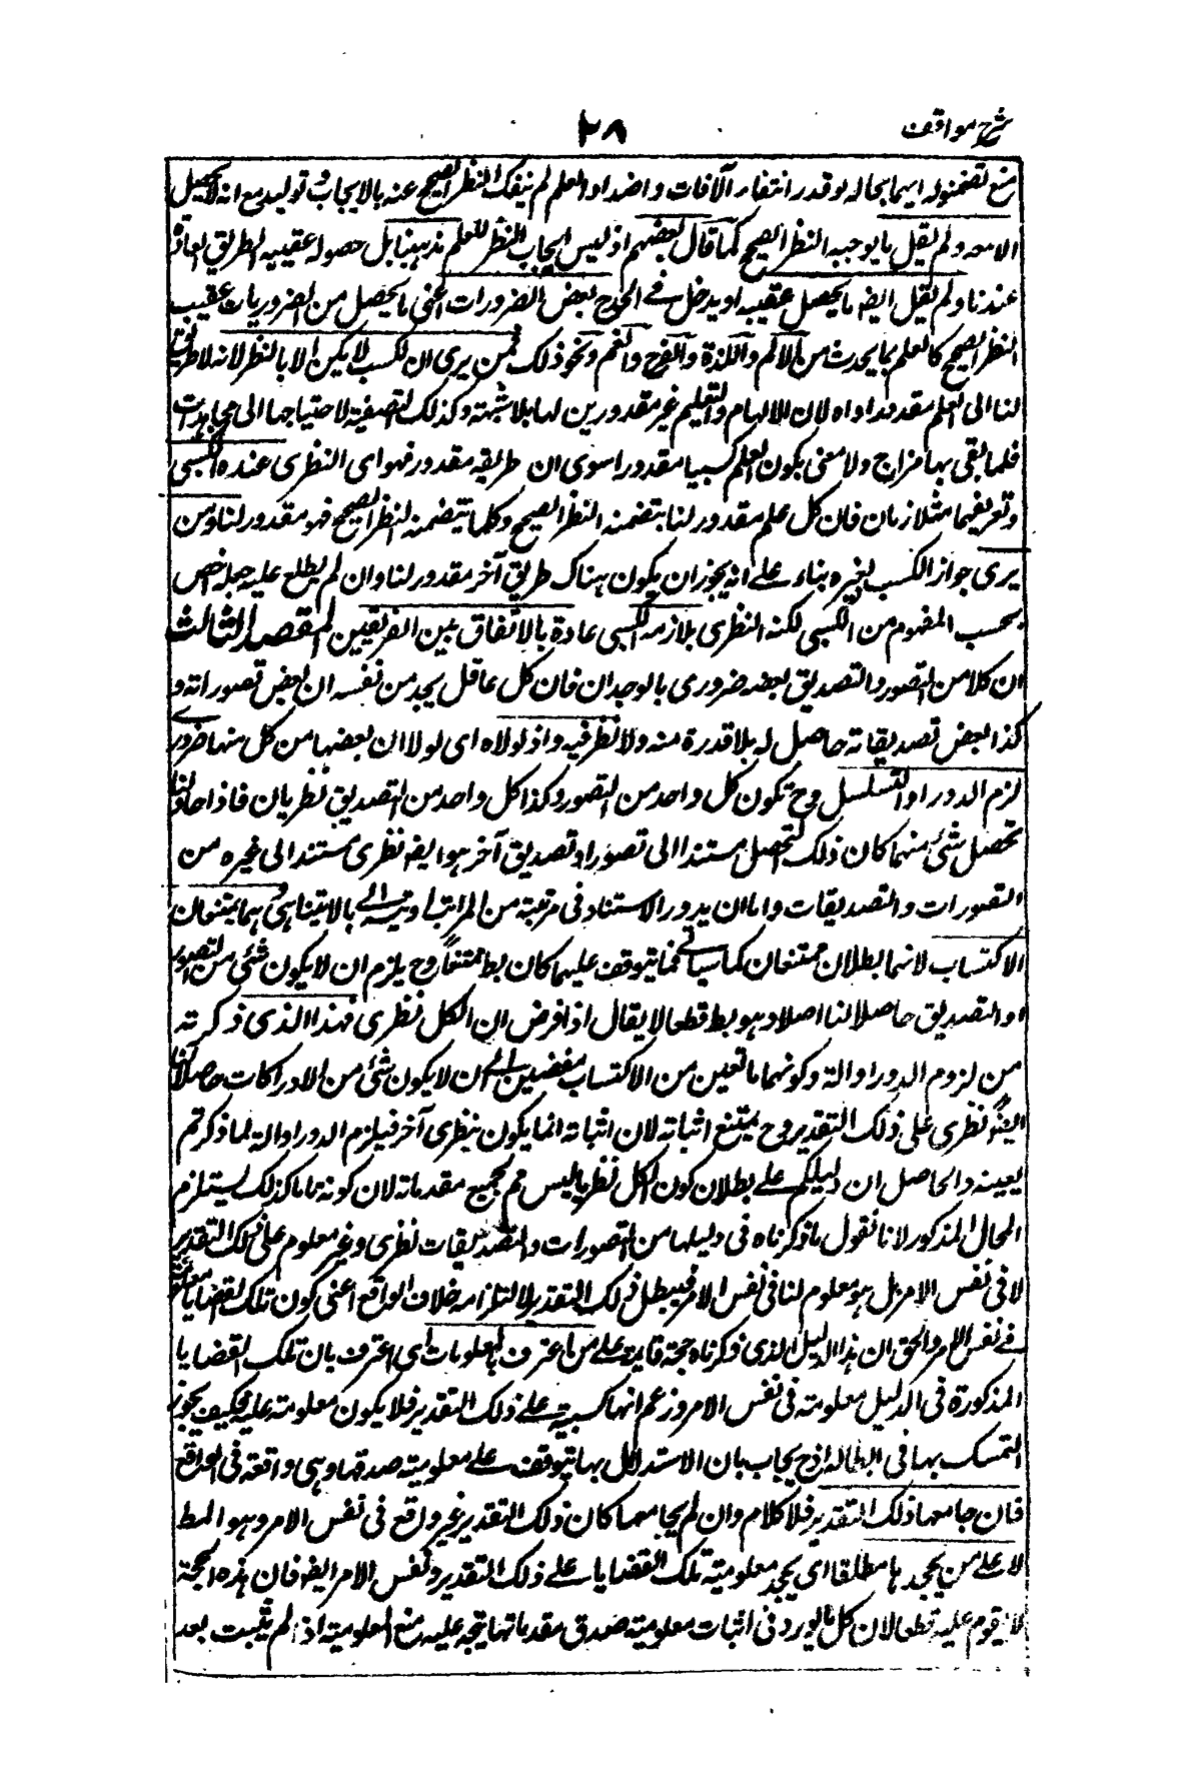 شرح مواقف
٢٨
مع تضمنه له اسيما بحاله لو قدر انتفاء الآفات و اضداد العلم لم ينفك النظر الصحيح عنه بالايجاب و توليد مع انه لا يحصل
الامعه و لم يقل ما يوجبه النظر الصحيح كما قال بعضهم اذ ليس ايجاب النظر للعلم مذهبنا بل حصوله عقيبه بطريق العادة
عندنا و لم يقل ايضه ما يحصل عقيبه او يدخل في الحد ح بعض الضرورات اعني ما يحصل من الضروريات عقيب
النظر الصحيح كالعلم بما يحدث من الالم و اللذة و الفرح و الغم و نحو ذلك فمن يرى ان الكسب لا يمكن الا بالنظر لانه لا طريق
لنا الى العلم مقدورا سواه لان الالهام و التعليم غير مقدورين لنا بلا شبهة و كذلك التصفية لاحتياجها الى مجاهدات
قلما يفى بها مزاج و لا معنى بكون العلم كسبيا مقدورا سوى ان طريقه مقدور فهو اى النظرى عنده الكسبى
و تعريفهما متلازمان فان كل علم مقدور لنا يتضمنه النظر الصحيح و كلما يتضمنه النظر الصحيح فهو مقدور لنا و من
يرى جواز الكسب بغيره بناء على انه يجوز ان يكون هناك طريق آخر مقدور لنا و ان لم يطلع عليه جعله اخص
بحسب المفهوم من الكسبى لكنه النظرى يلازمه الكسبى عادة بالاتفاق بين الفريقين المقصد الثالث
ان كلا من التصور و التصديق بعضه ضرورى بالوجدان فان كل عاقل يجد من نفسه ان بعض تصوراته و
كذا بعض تصديقاته حاصل له بلا قدرة منه و لا نظر فيه و اذ لولاه اى لولا ان بعضها من كل منهما ضرورى
لزم الدور او التسلسل و ح تكون كل واحد من التصور و كذا كل واحد من التصديق نظريان فاذا حاولنا
تحصل شئ منهما كان ذلك التحصل مستندا الى تصور او تصديق آخر هو ايضه نظرى مستند الى غيره من
التصورات و التصديقات و اما ان يدور الاستناد فى مرتبة من المراتب او يتس الى ما لا يتناهى و هما يمنعان
الاكتساب لانهما بطلان ممتنعان كما سياتى فما يتوقف عليهما كان بط ممتنعا و ح يلزم ان لا يكون شئ من التصور
او التصديق حاصلا لنا اصلا و هو بط قطعا لا يقال اذا فرض ان الكل نظرى فهذا الذى ذكرته
من لزوم الدور او الته و كونهما مانعين من الاكتساب مفضيين الى ان لا يكون شئ من الادراكات حاصلا لنا
ايضه نظرى على ذلك التقدير و ح يمتنع اثباته لان اثباته انما يكون بنظرى آخر فيلزم الدور او الته لما ذكرتم
بعينه و الحاصل ان دليلكم على بطلان كون الكل نظريا ليس يتم بجميع مقدماته لان كونه تاما كذلك يستلزم
المحال المذكور لانا نقول ما ذكرناه فى دليلها من التصورات و التصديقات نظرى و غير معلوم على ذلك التقدير
لا فى نفس الامر بل هو معلوم لنا فى نفس الامر فيبطل ذلك التقدير لاستلزامه خلاف الواقع اعنى كون تلك القضايا معلومة
في نفس الامر و الحق ان هذا الدليل الذى ذكرناه حجة قايمة على من اعترف بالمعلومات اى اعترف بان تلك القضايا
المذكورة فى الدليل معلومته فى نفس الامر و زعم انها كسبية على ذلك التقدير فلا يكون معلومته عليه فكيف يجوز
التمسك بها فى ابطاله اذ ح يجاب بان الاستدلال بها يتوقف على معلومية صدقها و هى واقعة فى الواقع
فان جامعها ذلك التقدير فلا كلام و ان لم يجامعها كان ذلك التقدير غير واقع فى نفس الامر و هو المط
لا على من يجحدها مطلقا اى يجحد معلومية تلك القضايا على ذلك التقدير و نفس الامر ايضه فان هذه الحجة
لا يقوم عليه قطعا لان كل ما يورد فى اثبات معلومية صدق مقدماتها يتجه عليه منع المعلومية اذ لم يثبت بعد